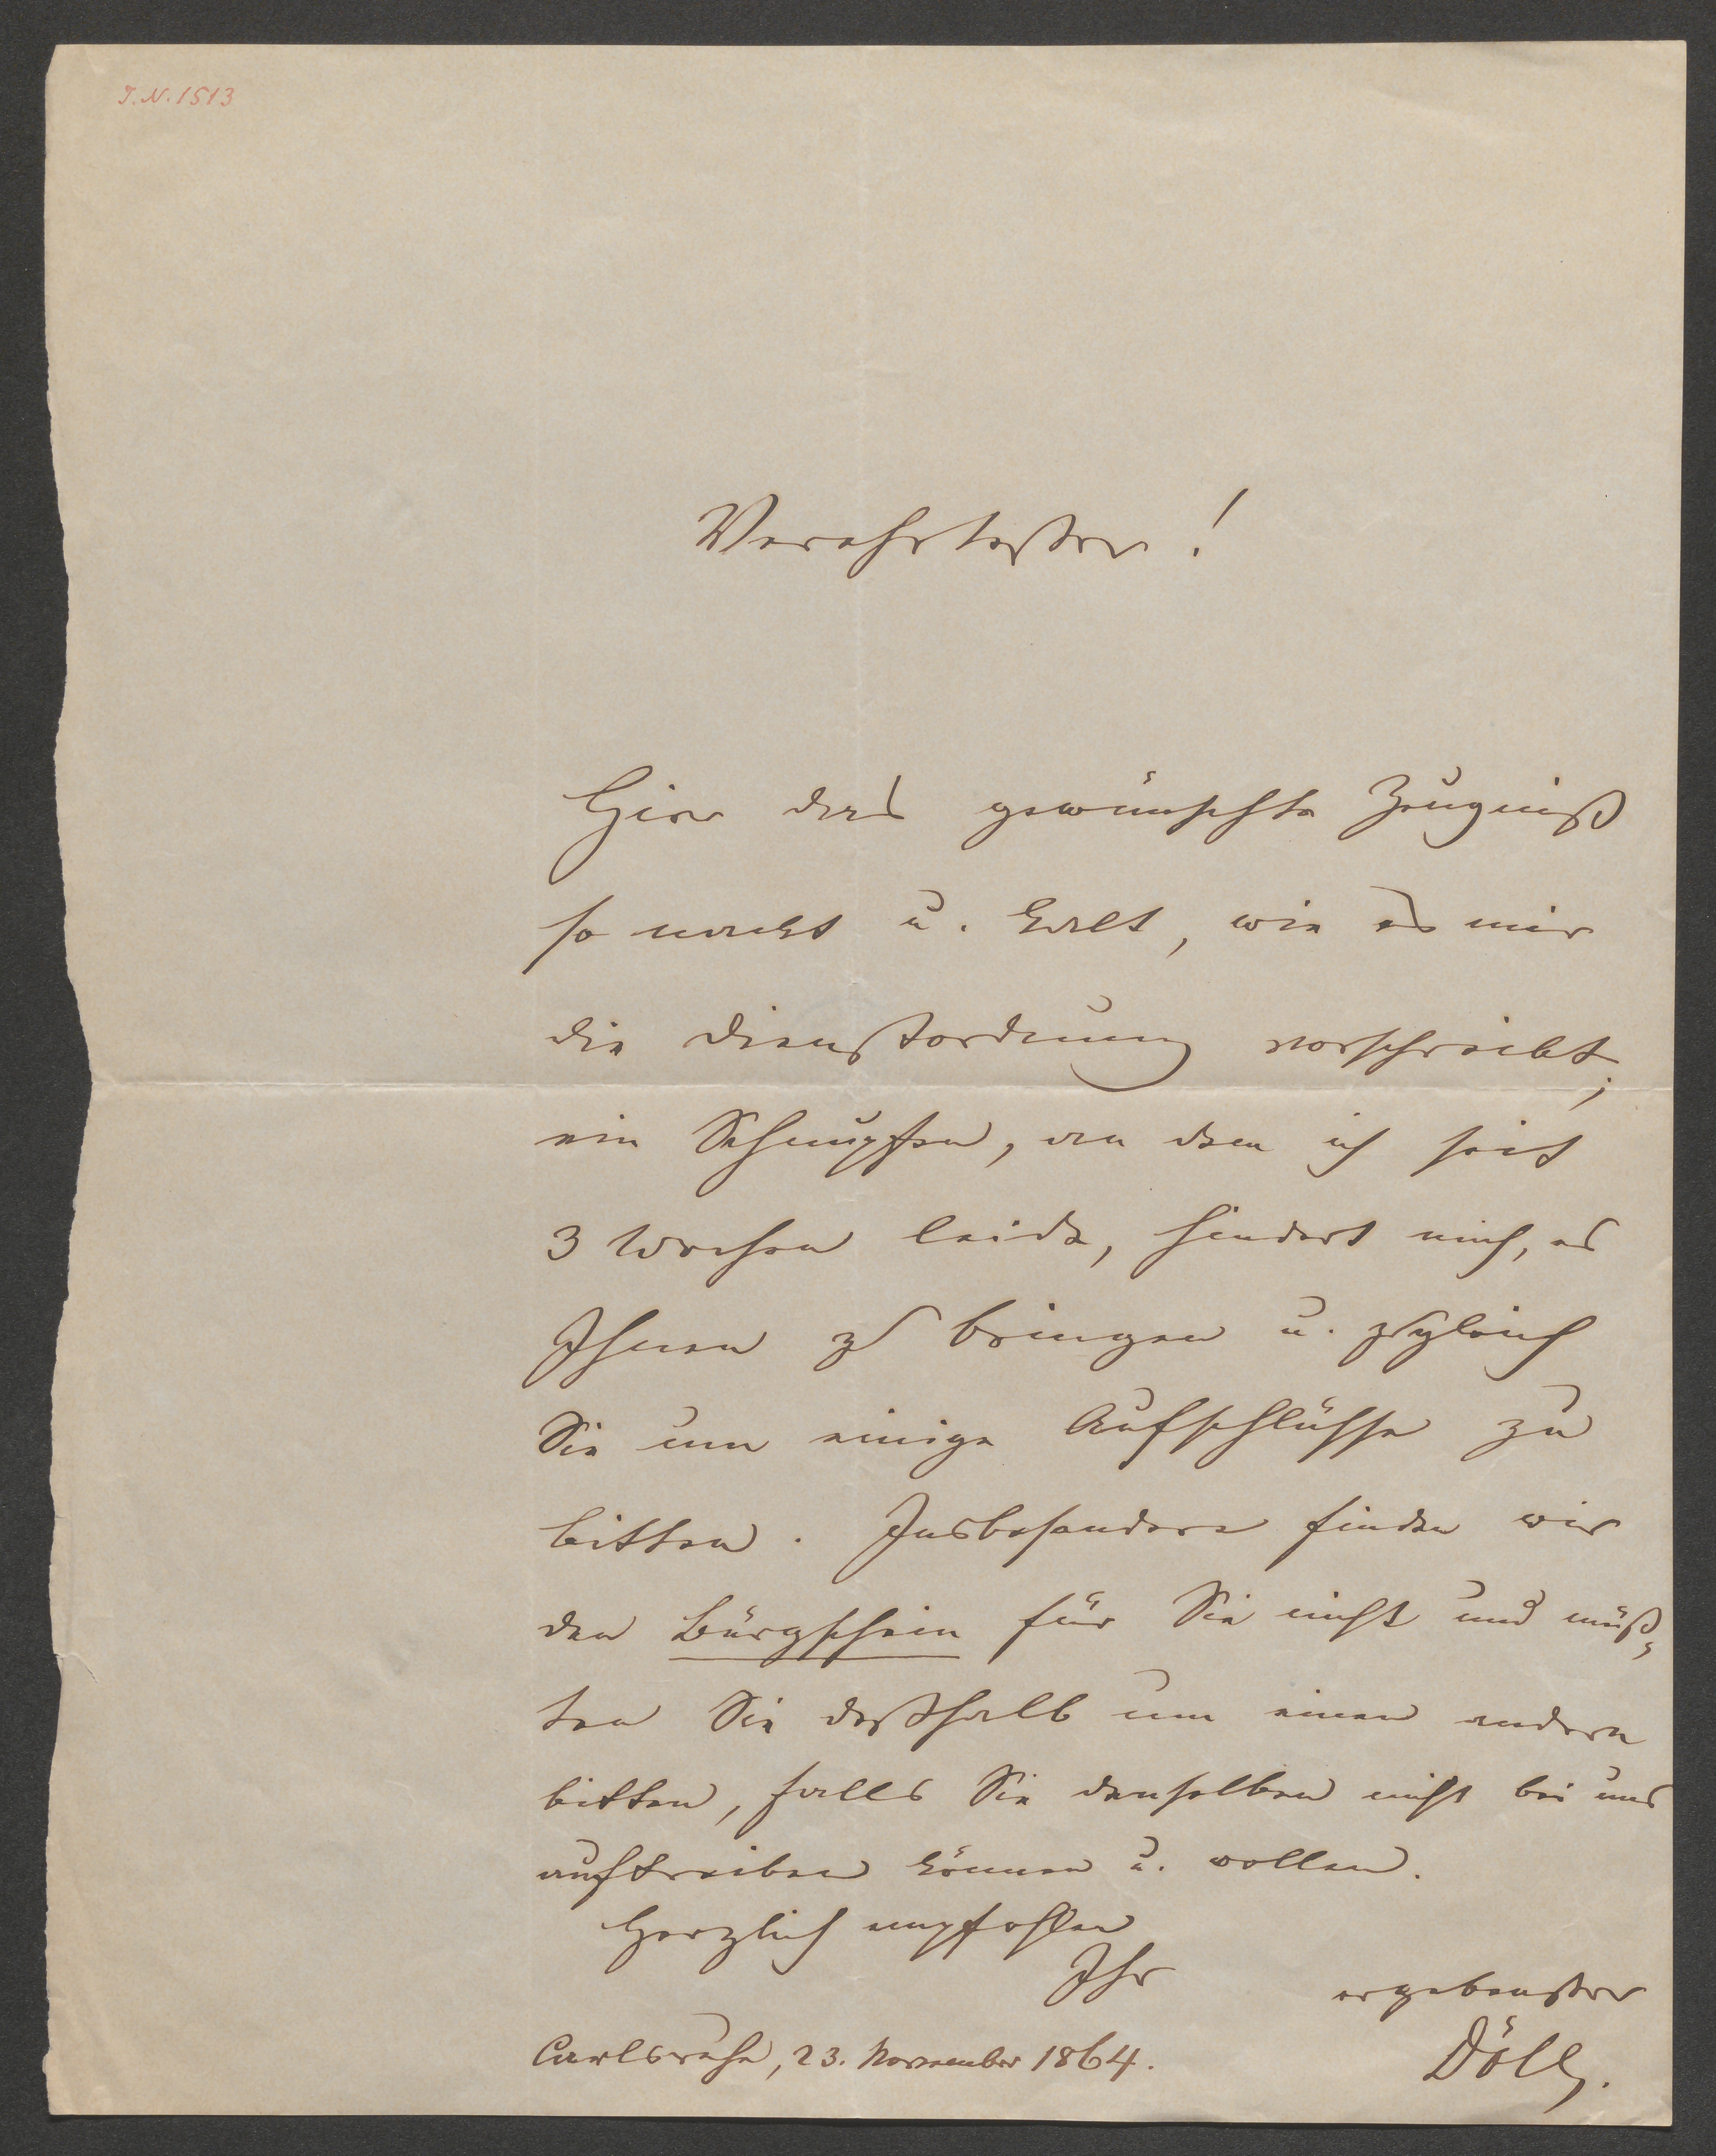 J.N. 1513
Verehrtester!
Hier das gewünschte Zeugniß
so nackt u. kalt, wie es mir
die Dienstordnung vorschreibt;
ein Schnupfen, an dem ich seit
3 Wochen leide, hindert mich, es
Ihnen zu bringen u. zugleich
Sie um einige Aufschlüsse zu
bitten. Insbesondere finden wir
den Bürgschein für Sie nicht und müß-
ten Sie deßhalb um einen andern
bitten, falls Sie denselben nicht bei uns
auftreiben können u. wollen.
Herzlich empfohlen
Ihr
ergebenster
Carlsruhe, 23. November 1864.
Döll.